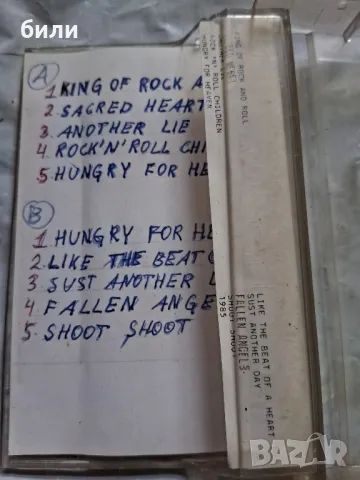 били
A
1. KING OF ROCK A
2. SACRED HEART
3. ANOTHER LIE
4. ROCK'N'ROLL CHI
5. HUNGRY FOR HE
B
1 HUNGRY FOR HE
2. LIKE THE BEAT O
3 SUST ANOTHER L
4 FALLEN ANGE
5. SHOOT SHOOT
KING OF ROCK AND ROLL
ROCK 'N' ROLL CHILDREN
HUNGRY FOR HEAVEN
LIKE THE BEAT OF A HEART
SUST ANOTHER DAY
FALLEN ANGELS
SHOOT SHOOT
1985
BAZAR
bg